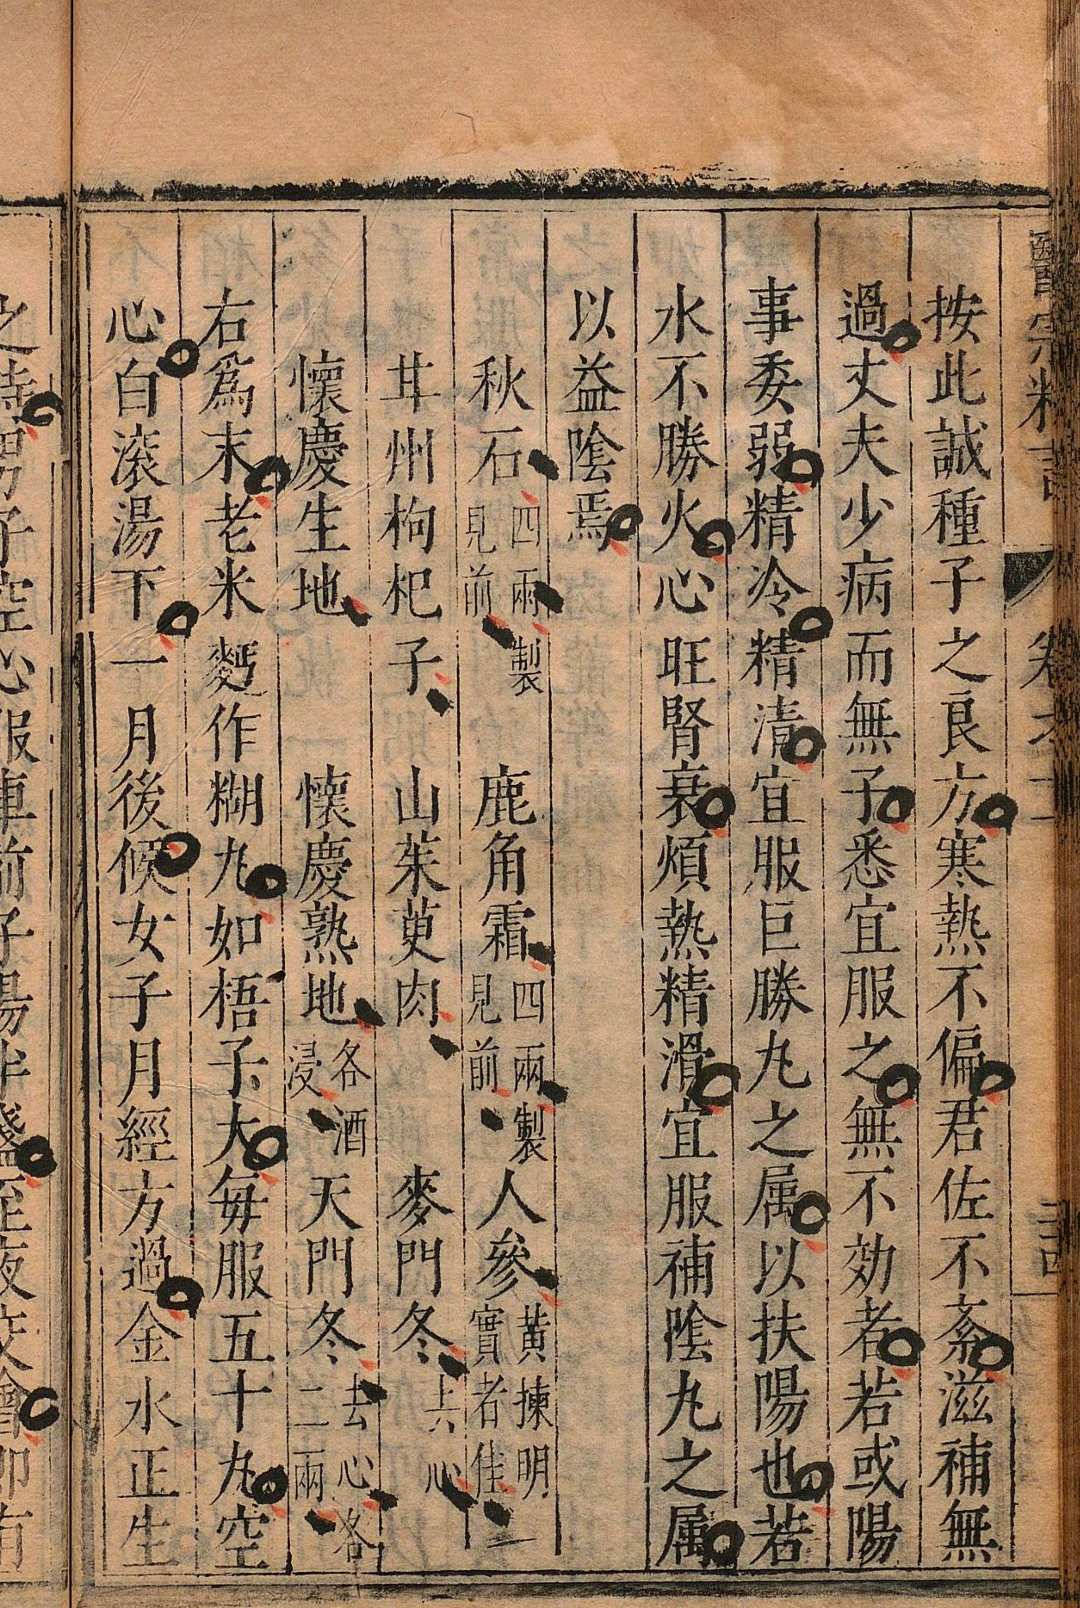 按此誠種子之良方寒熱不偏君佐不紊滋補無
過丈夫少病而無子悉宜服之無不効者若或陽
事委弱精冷精清宜服巨勝丸之属以扶陽也若
水不勝火心旺腎衰煩熱精滑宜服補陰丸之属
以益陰焉
秋石四兩製見前　鹿角霜四兩製見前　人參黄揀明實者佳一
甘州枸杞子　山茱萸肉　麥門冬去心
懷慶生地　懷慶熟地各酒浸　天門冬去心各二兩
右爲末老米麪作糊丸如梧子大毎服五十丸空
心白滚湯下一月後候女子月經方過金水正生
之時男子空心服車前子湯半盞至夜交會即有